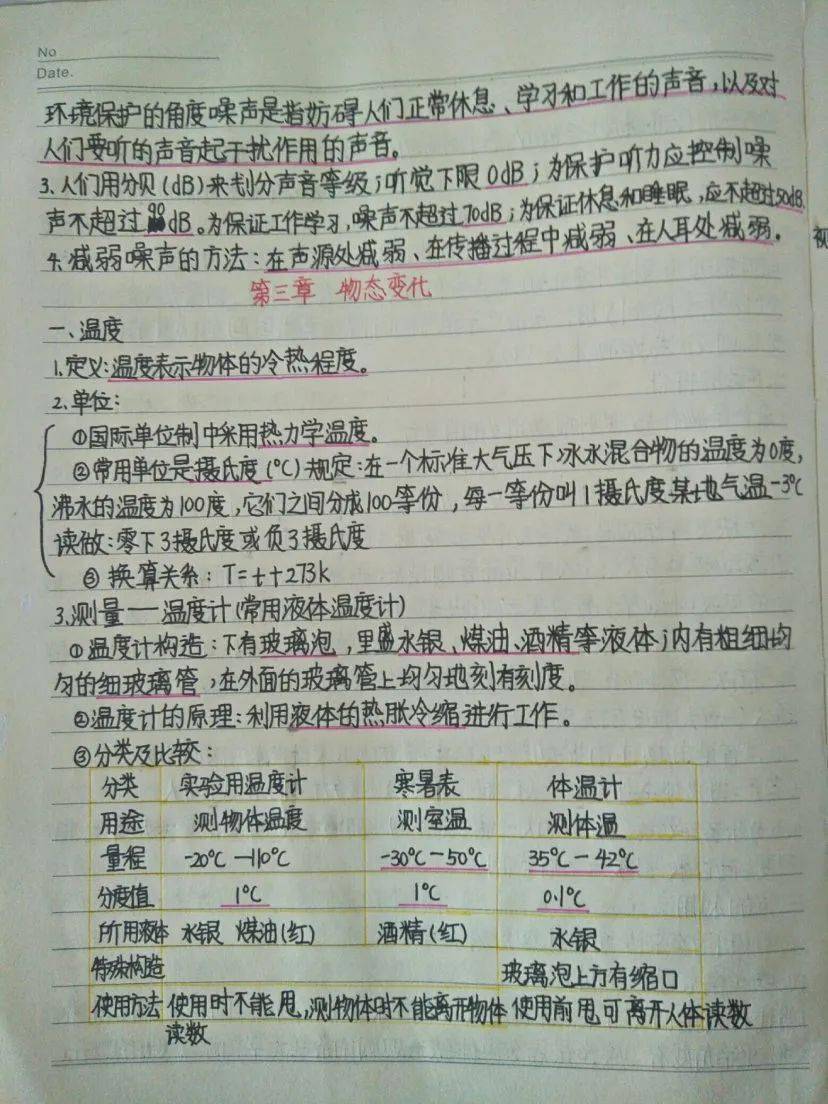 No
Date.
环境保护的角度噪声是指妨碍人们正常休息、学习和工作的声音，以及对
人们要听的声音起干扰作用的声音。
3.人们用分贝(dB)来划分声音等级；听觉下限0dB；为保护听力应控制噪
声不超过90dB。为保证工作学习，噪声不超过70dB；为保证休息和睡眠，应不超过50dB.
4.减弱噪声的方法：在声源处减弱、在传播过程中减弱、在人耳处减弱。
视
第三章 物态变化
一、温度
1.定义：温度表示物体的冷热程度。
2.单位：
①国际单位制中采用热力学温度。
②常用单位是摄氏度(℃)规定：在一个标准大气压下冰水混合物的温度为0度，
沸水的温度为100度，它们之间分成100等份，每一等份叫1摄氏度某地气温-3℃
读做：零下3摄氏度或负3摄氏度
③换算关系：T=t+273k
3.测量——温度计(常用液体温度计)
①温度计构造：下有玻璃泡，里盛水银、煤油、酒精等液体；内有粗细均
匀的细玻璃管，在外面的玻璃管上均匀地刻有刻度。
②温度计的原理：利用液体的热胀冷缩进行工作。
③分类及比较：
分类 实验用温度计 寒暑表 体温计
用途 测物体温度 测室温 测体温
量程 -20℃—110℃ -30℃—50℃ 35℃—42℃
分度值 1℃ 1℃ 0.1℃
所用液体 水银 煤油(红) 酒精(红) 水银
特殊构造 玻璃泡上方有缩口
使用方法 使用时不能甩，测物体时不能离开物体 使用前甩可离开人体读数
读数